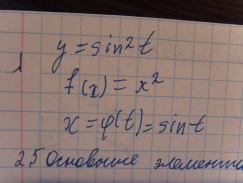 y = sin²t
f(x) = x²
x = φ(t) = sin t
2.5 Основные элемента